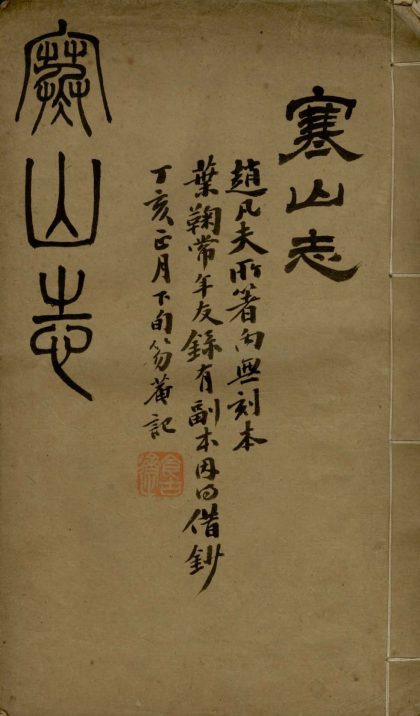 寒山志
趙凡夫所著向無刻本
葉鞠常年友錄有副本因得借鈔
丁亥正月下旬笏菴記
寒山志